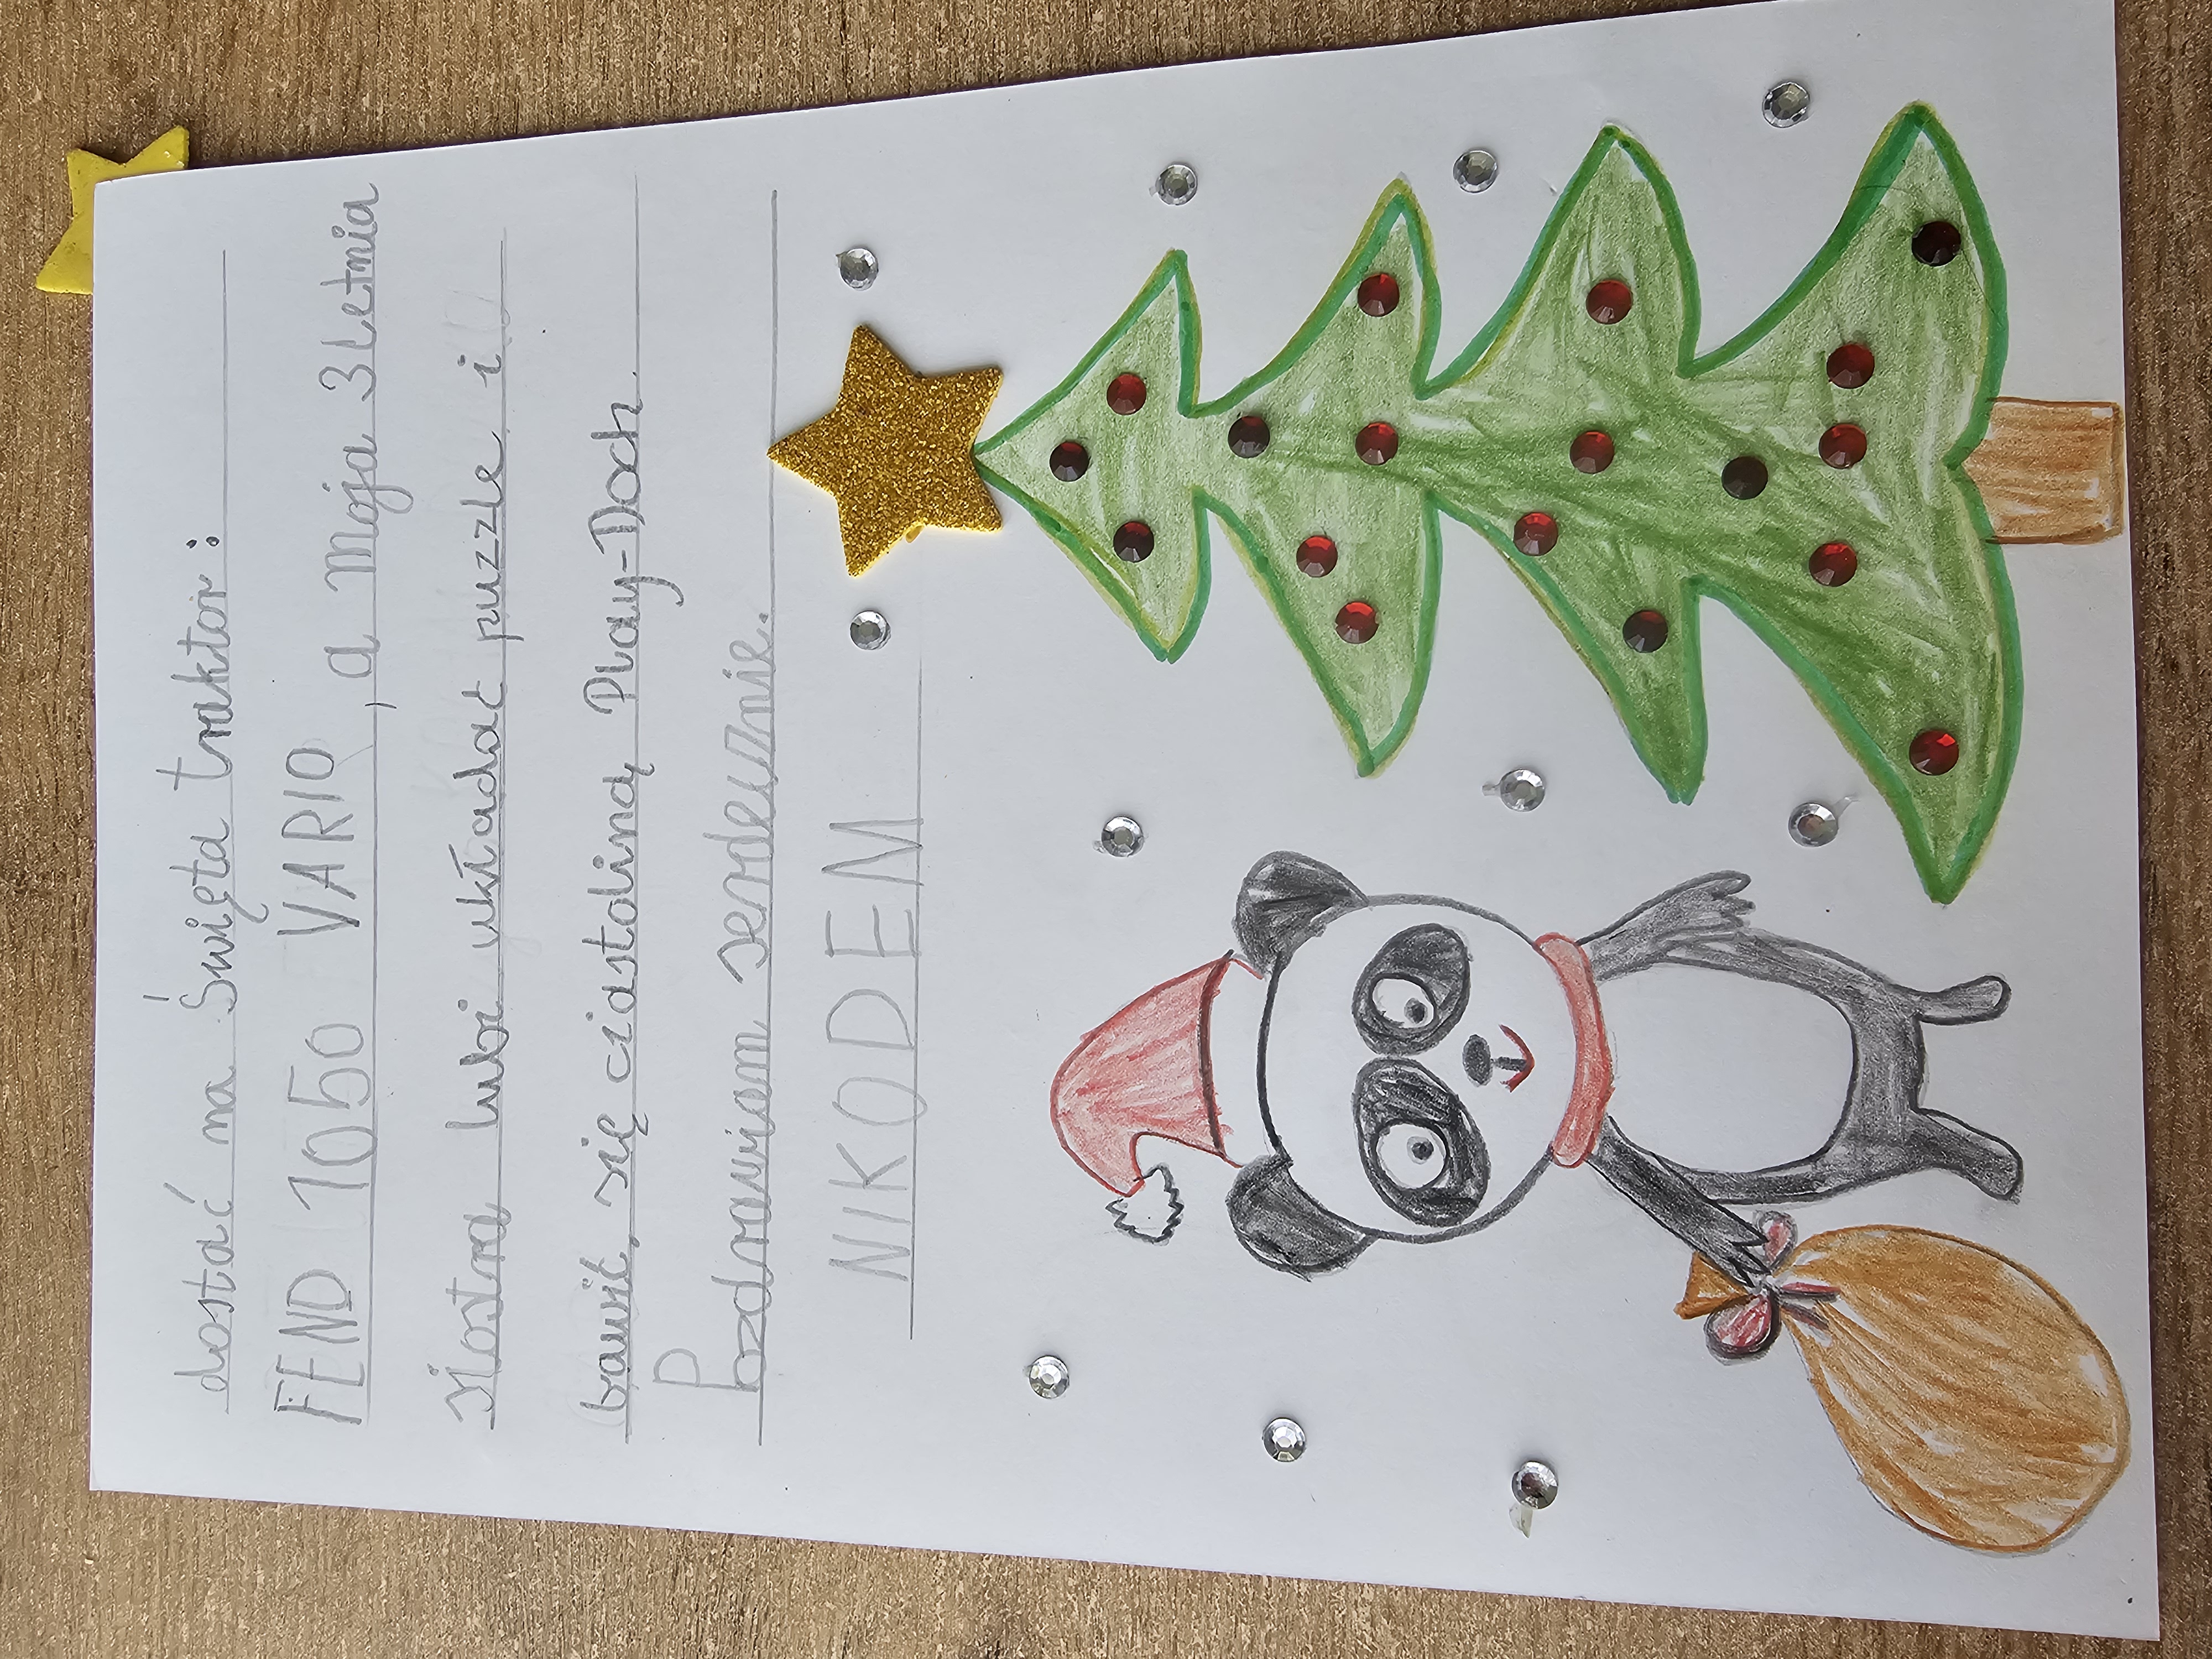 dostać na Święta traktor:
FEND 1050 VARIO, a moja 3 letnia
siostra lubi układać puzzle i
bawić się ciastoliną Play-Doch.
Pozdrawiam serdecznie.
NIKODEM